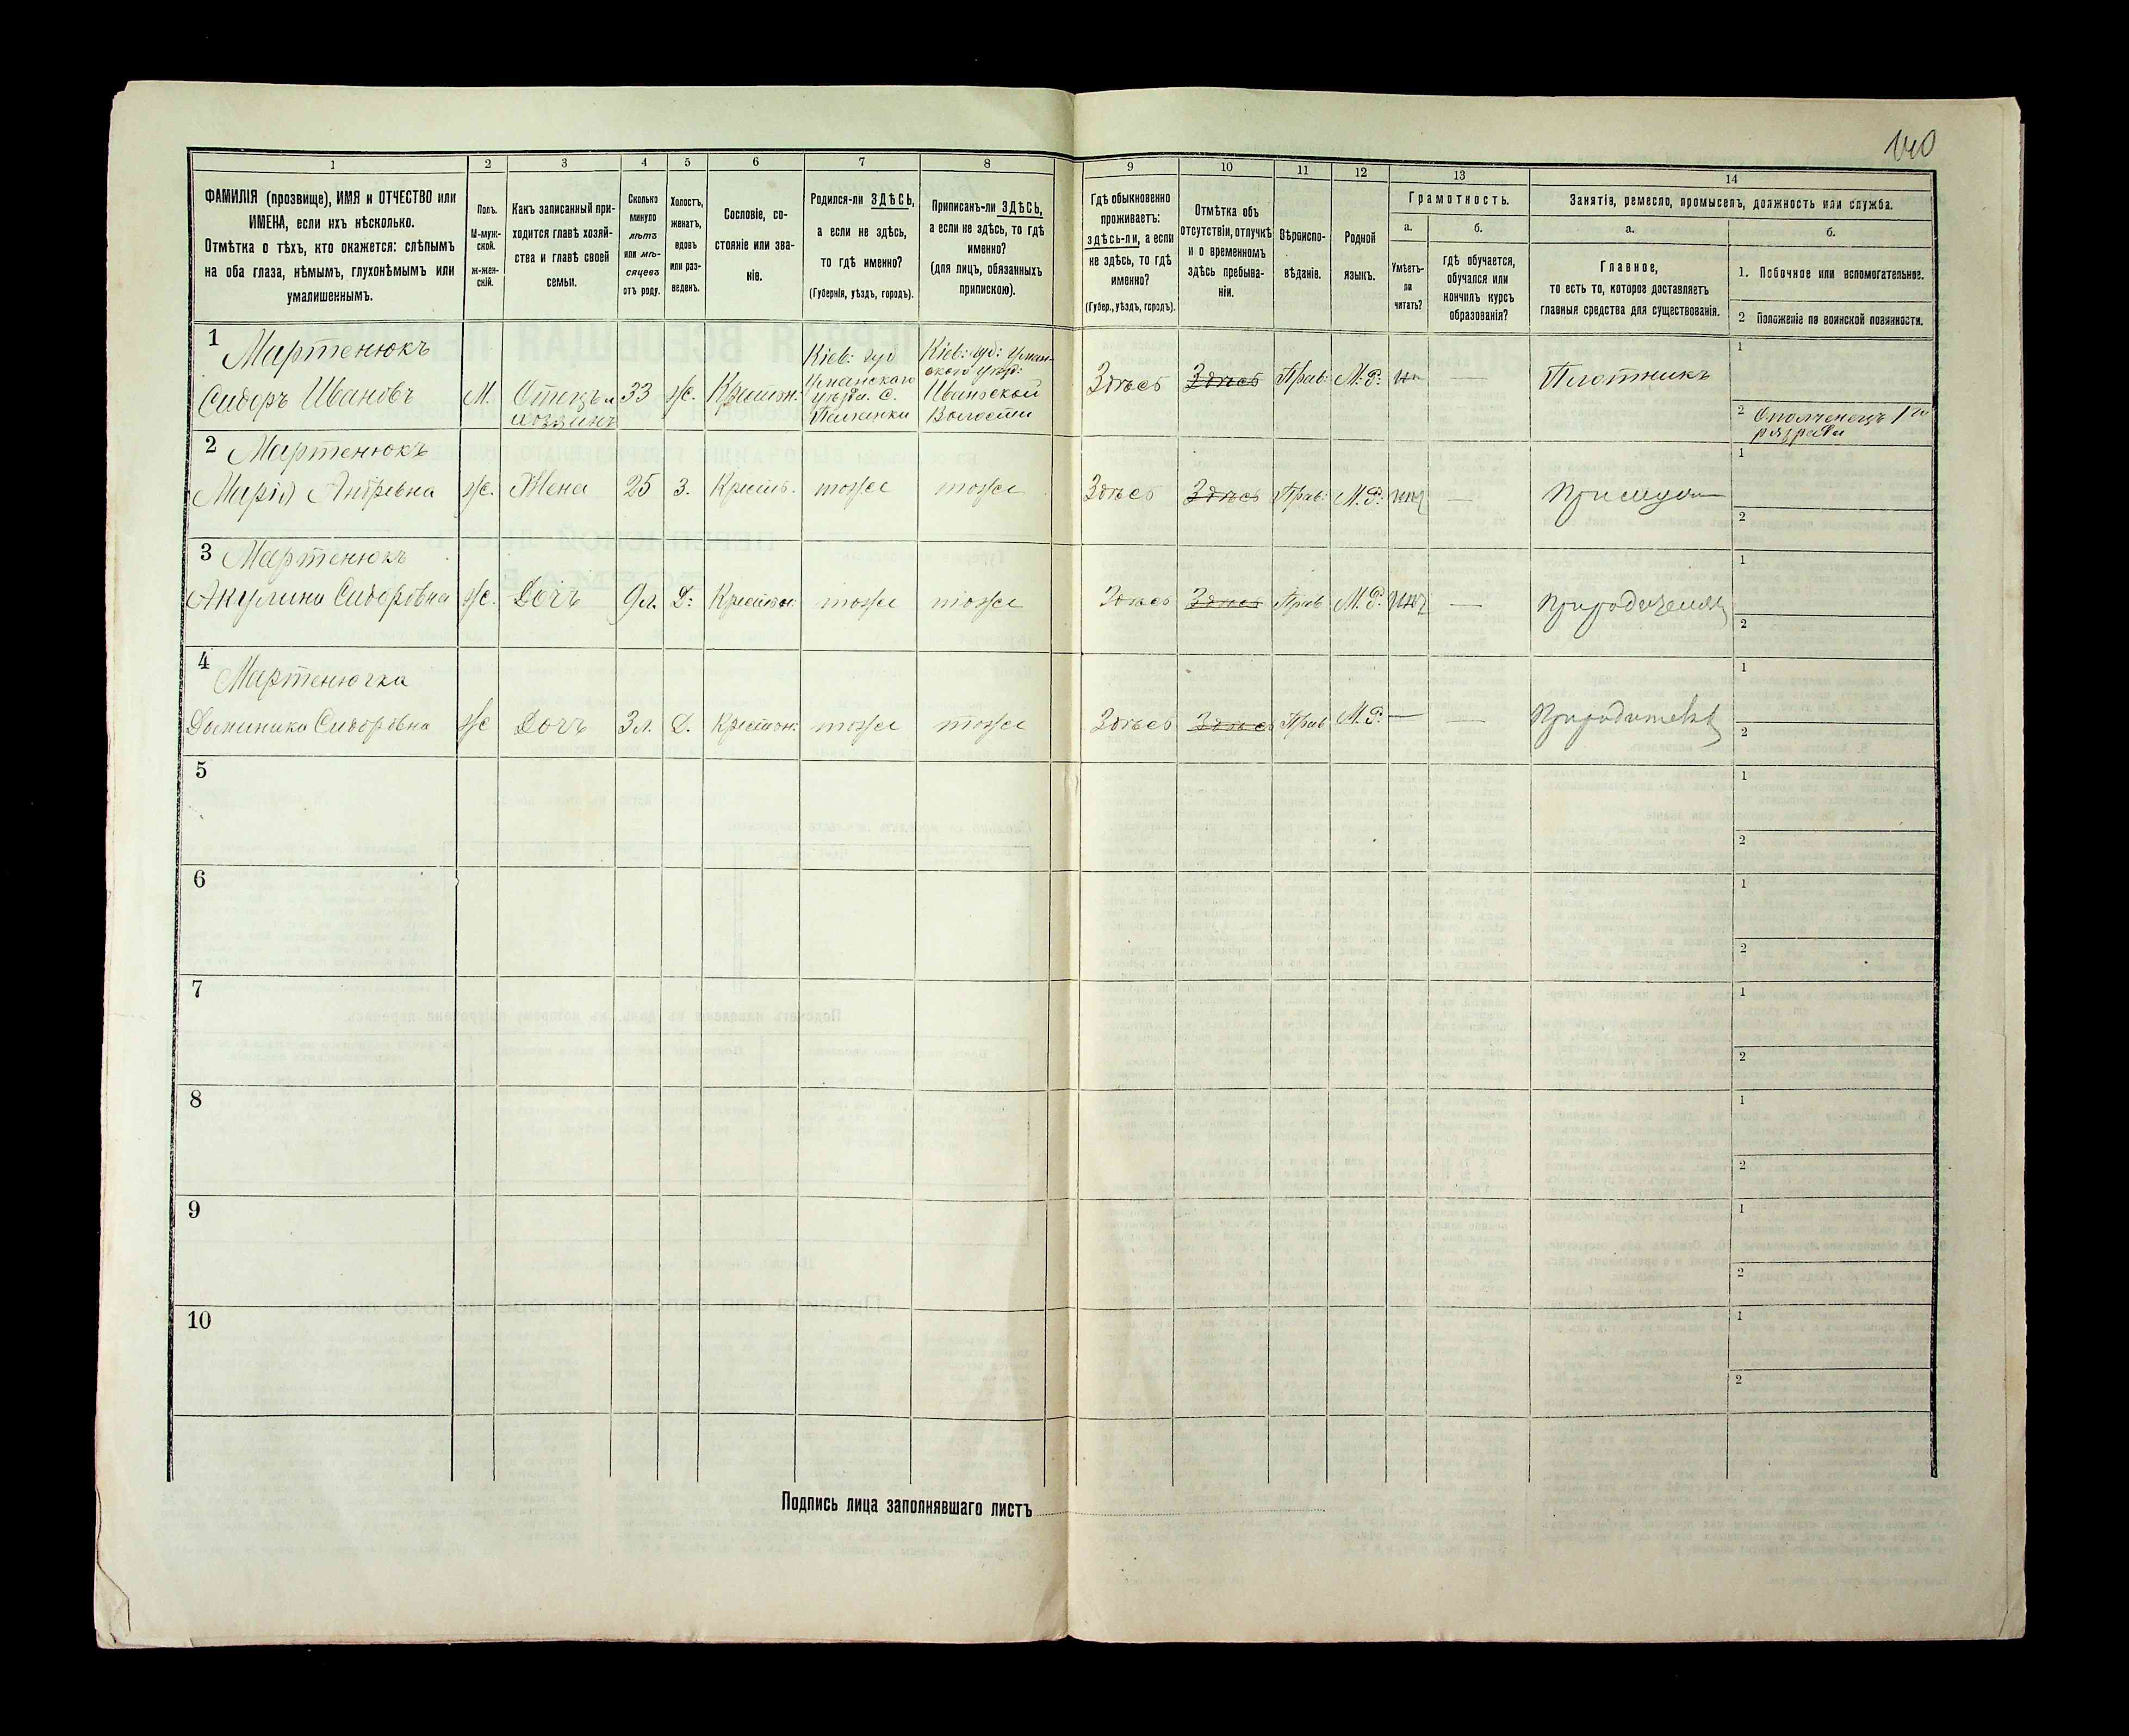 140
1 2 3 4 5 6 7 8 9 10 11 12 13 14
ФАМИЛІЯ (прозвище), ИМЯ и ОТЧЕСТВО или
ИМЕНА, если ихъ нѣсколько.
Отмѣтка о тѣхъ, кто окажется: слѣпымъ
на оба глаза, нѣмымъ, глухонѣмымъ или
умалишеннымъ.
Полъ.
М-муж-
ской.
ж-жен-
скій.
Какъ записанный при-
ходится главѣ хозяй-
ства и главѣ своей
семьи.
Сколько
минуло
лѣтъ
или мѣ-
сяцевъ
отъ роду.
Холостъ,
женатъ,
вдовъ
или раз-
веденъ.
Сословіе, со-
стояніе или зва-
ніе.
Родился-ли ЗДѢСЬ,
а если не здѣсь,
то гдѣ именно?
(Губернія, уѣздъ, городъ).
Приписанъ-ли ЗДѢСЬ,
а если не здѣсь, то гдѣ
именно?
(для лицъ, обязанныхъ
припискою).
Гдѣ обыкновенно
проживаетъ:
здѣсь-ли, а если
не здѣсь, то гдѣ
именно?
(Губер., уѣздъ, городъ).
Отмѣтка объ
отсутствіи, отлучкѣ
и о временномъ
здѣсь пребыва-
ніи.
Вѣроиспо-
вѣданіе.
Родной
языкъ.
Грамотность.
а.
Умѣетъ-
ли
читать?
б.
гдѣ обучается,
обучался или
кончилъ курсъ
образованія?
Занятіе, ремесло, промыселъ, должность или служба.
а.
Главное,
то есть то, которое доставляетъ
главныя средства для существованія.
б.
1. Побочное или вспомогательное.
2 Положеніе по воинской повинности.
1 Мартенюкъ
Сидоръ Ивановъ
М.
Отецъ и
хозяинъ
33
ж.
Крестян.
Кіев: губ
Уманскаго
уѣзда. С.
Паланки
Кіев: губ: Уман-
скаго уѣзд:
Иванской
Волости
Здѣсь
Здѣсь
Прав:
М. Р:
—
Плотникъ
1
2 Ополченецъ 1го
разряда
2 Мартенюкъ
Марія Андреевна
ж.
Жена
25
З.
Крестья.
тоже
тоже
Здѣсь
Здѣсь
Прав:
М. Р:
—
При мужѣ
1
2
3 Мартенюкъ
Акулина Сидоровна
ж.
Дочь
9 л.
Д:
Крестян:
тоже
тоже
Здѣсь
Здѣсь
Прав
М. Р:
—
При родителях
1
2
4
Мартенючка
Доминика Сидоровна
ж
Дочь
3 л.
Д.
Крестян:
тоже
тоже
Здѣсь
Здѣсь
Прав
М. Р:
—
—
При родителях
1
2
5
1
2
6
1
2
7
1
2
8
1
2
9
1
2
10
1
2
Подпись лица заполнявшаго листъ